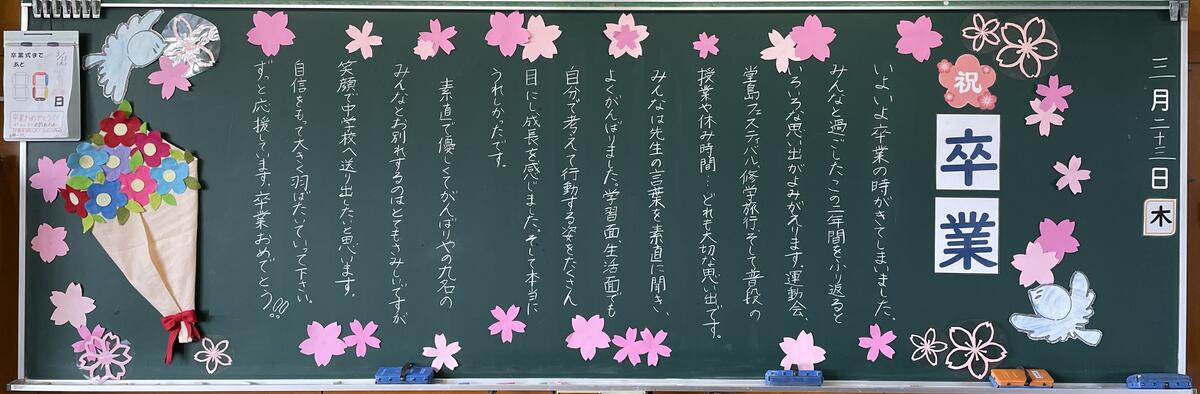 三月二十三日
木
祝
卒業
いよいよ卒業の時がきてしまいました。
みんなと過ごしたこの二年間をふり返ると
いろいろな思い出がよみがえります。運動会、
堂島フェスティバル、修学旅行そして普段の
授業や休み時間…どれも大切な思い出です。
みんなは先生の言葉を素直に聞き、
よくがんばりました。学習面、生活面でも
自分で考えて行動する姿をたくさん
目にし、成長を感じました。そして本当に
うれしかったです。
素直で優しくてがんばりやの九名の
みんなとお別れするのはとてもさみしいですが
笑顔で中学校へ送り出したいと思います。
自信をもって大きく羽ばたいていって下さい。
ずっと応援しています。卒業おめでとう!!!
卒業式まで
あと
0
日